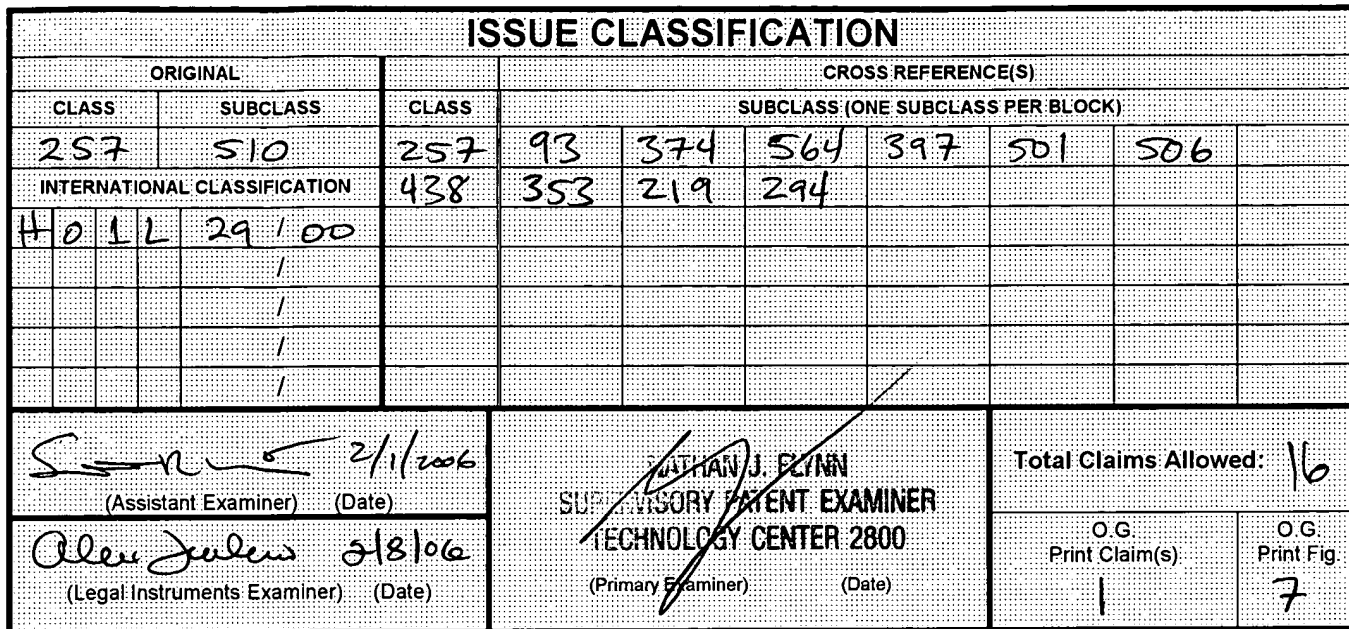 ISSUE CLASSIFICATION
ORIGINAL CROSS REFERENCE(S)
CLASS SUBCLASS CLASS SUBCLASS (ONE SUBCLASS PER BLOCK)
257 510 257 93 374 564 397 501 506
INTERNATIONAL CLASSIFICATION 438 353 219 294
H 0 1 L 29 / 00
/
/
/
/
2/1/2006
(Assistant Examiner) (Date)
2/8/06
(Legal Instruments Examiner) (Date)
NATHAN J. FLYNN
SUPERVISORY PATENT EXAMINER
TECHNOLOGY CENTER 2800
(Primary Examiner) (Date)
Total Claims Allowed: 16
O.G. Print Claim(s) O.G. Print Fig.
1 7